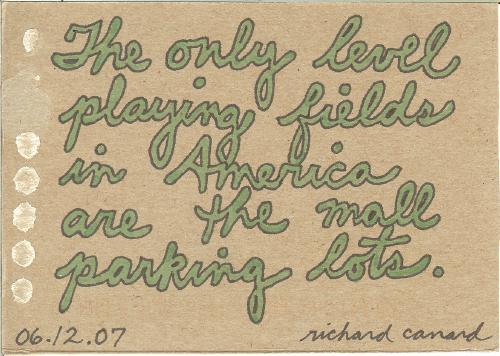 The only level
playing fields
in America
are the mall
parking lots.
06.12.07 richard canard